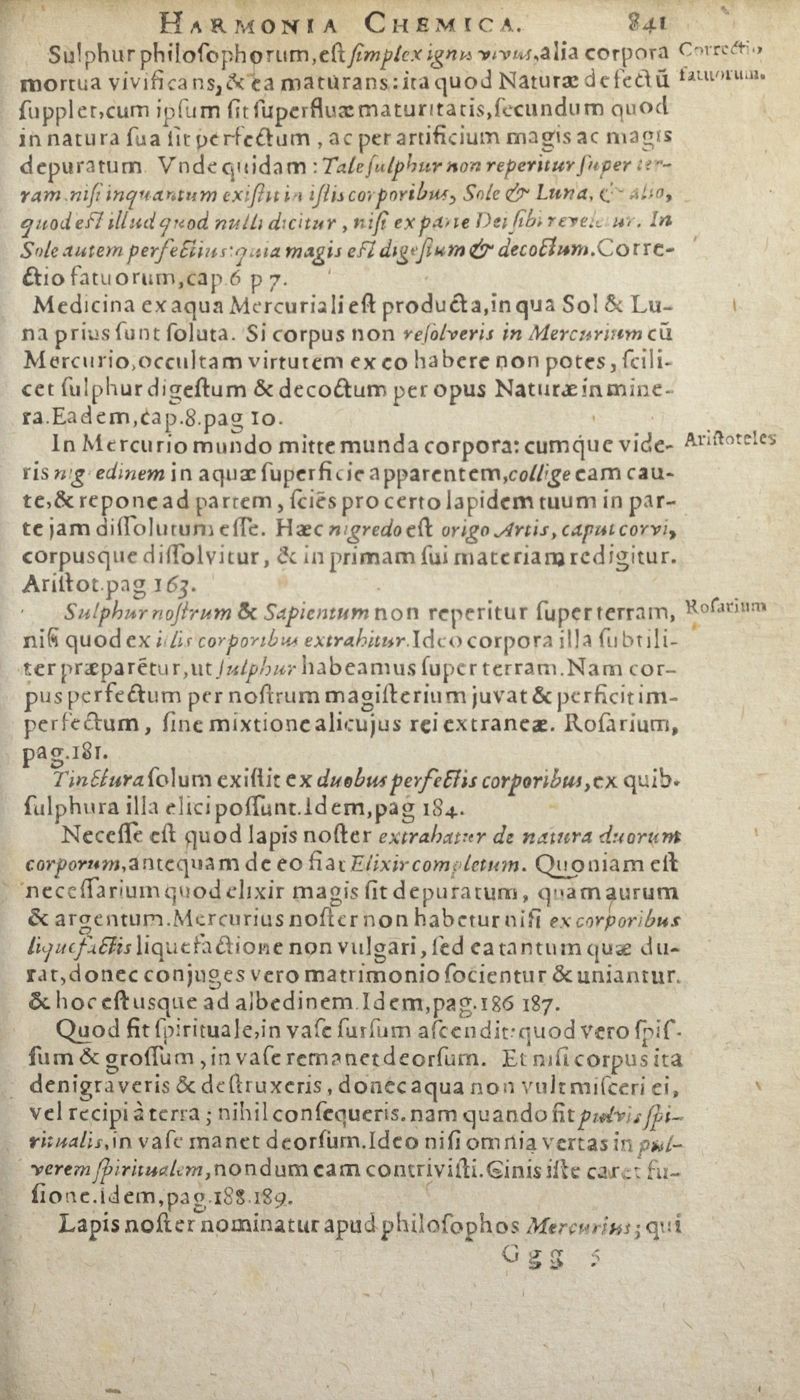 HARMONIA CHEMICA. 841
Sulphur philoſophorum, eſt ſimplex ignis vivus, alia corpora
Correctio
mortua vivificans, & ea maturans: ita quod Naturæ defectū
fatuorum.
ſupplet, cum ipſum ſit ſuperfluæ maturitatis, ſecundum quod
in natura ſua ſit perfectum, ac per artificium magis ac magis
depuratum Vnde quidam: Tale ſulphur non reperitur ſuper ter-
ram niſi inquantum exiſtit in iſtis corporibus, Sole & Luna, & alio,
quod eſt illud quod nulli dicitur, niſi ex parte Dei ſibi reveletur. In
Sole autem perfectius: quia magis eſt digeſtum & decoctum. Corre-
ctio fatuorum, cap. 6 p 7.
Medicina ex aqua Mercuriali eſt producta, in qua Sol & Lu-
na prius ſunt ſoluta. Si corpus non reſolveris in Mercurium cū
Mercurio, occultam virtutem ex eo habere non potes, ſcili-
cet ſulphur digeſtum & decoctum per opus Naturæ in mine-
ra. Eadem, cap. 8. pag 10.
In Mercurio mundo mitte munda corpora: cumque vide-
Ariſtoteles
ris nigredinem in aquæ ſuperficie apparentem, collige eam cau-
te, & repone ad partem, ſciēs pro certo lapidem tuum in par-
te jam diſſolutum eſſe. Hæc nigredo eſt origo Artis, caput corvi,
corpusque diſſolvitur, & in primam ſui materiam redigitur.
Ariſtot. pag 163.
Sulphur noſtrum & Sapientum non reperitur ſuper terram,
Roſarium
niſi quod ex illis corporibus extrahitur. Ideo corpora illa ſubtili-
ter præparētur, ut ſulphur habeamus ſuper terram. Nam cor-
pus perfectum per noſtrum magiſterium juvat & perficit im-
perfectum, ſine mixtione alicujus rei extraneæ. Roſarium,
pag. 181.
Tinctura ſolum exiſtit ex duobus perfectis corporibus, ex quib.
ſulphura illa elici poſſunt. Idem, pag 184.
Neceſſe eſt quod lapis noſter extrahatur de natura duorum
corporum, antequam de eo fiat Elixir completum. Quoniam eſt
neceſſarium quod elixir magis ſit depuratum, quàm aurum
& argentum. Mercurius noſter non habetur niſi ex corporibus
liquefactis liquefactione non vulgari, ſed ea tantum quæ du-
rat, donec conjuges vero matrimonio ſocientur & uniantur.
& hoc eſt usque ad albedinem. Idem, pag. 186 187.
Quod fit ſpirituale, in vaſe ſurſum aſcendit: quod vero ſpiſ-
ſum & groſſum, in vaſe remanet deorſum. Et niſi corpus ita
denigraveris & deſtruxeris, donec aqua non vult miſceri ei,
vel recipi à terra; nihil conſequeris. nam quando fit pulvis ſpi-
ritualis, in vaſe manet deorſum. Ideo niſi omnia vertas in pul-
verem ſpiritualem, nondum eam contriviſti. Cinis iſte caret fu-
ſione. idem, pag. 188. 189.
Lapis noſter nominatur apud philoſophos Mercurius; qui
Ggg 5